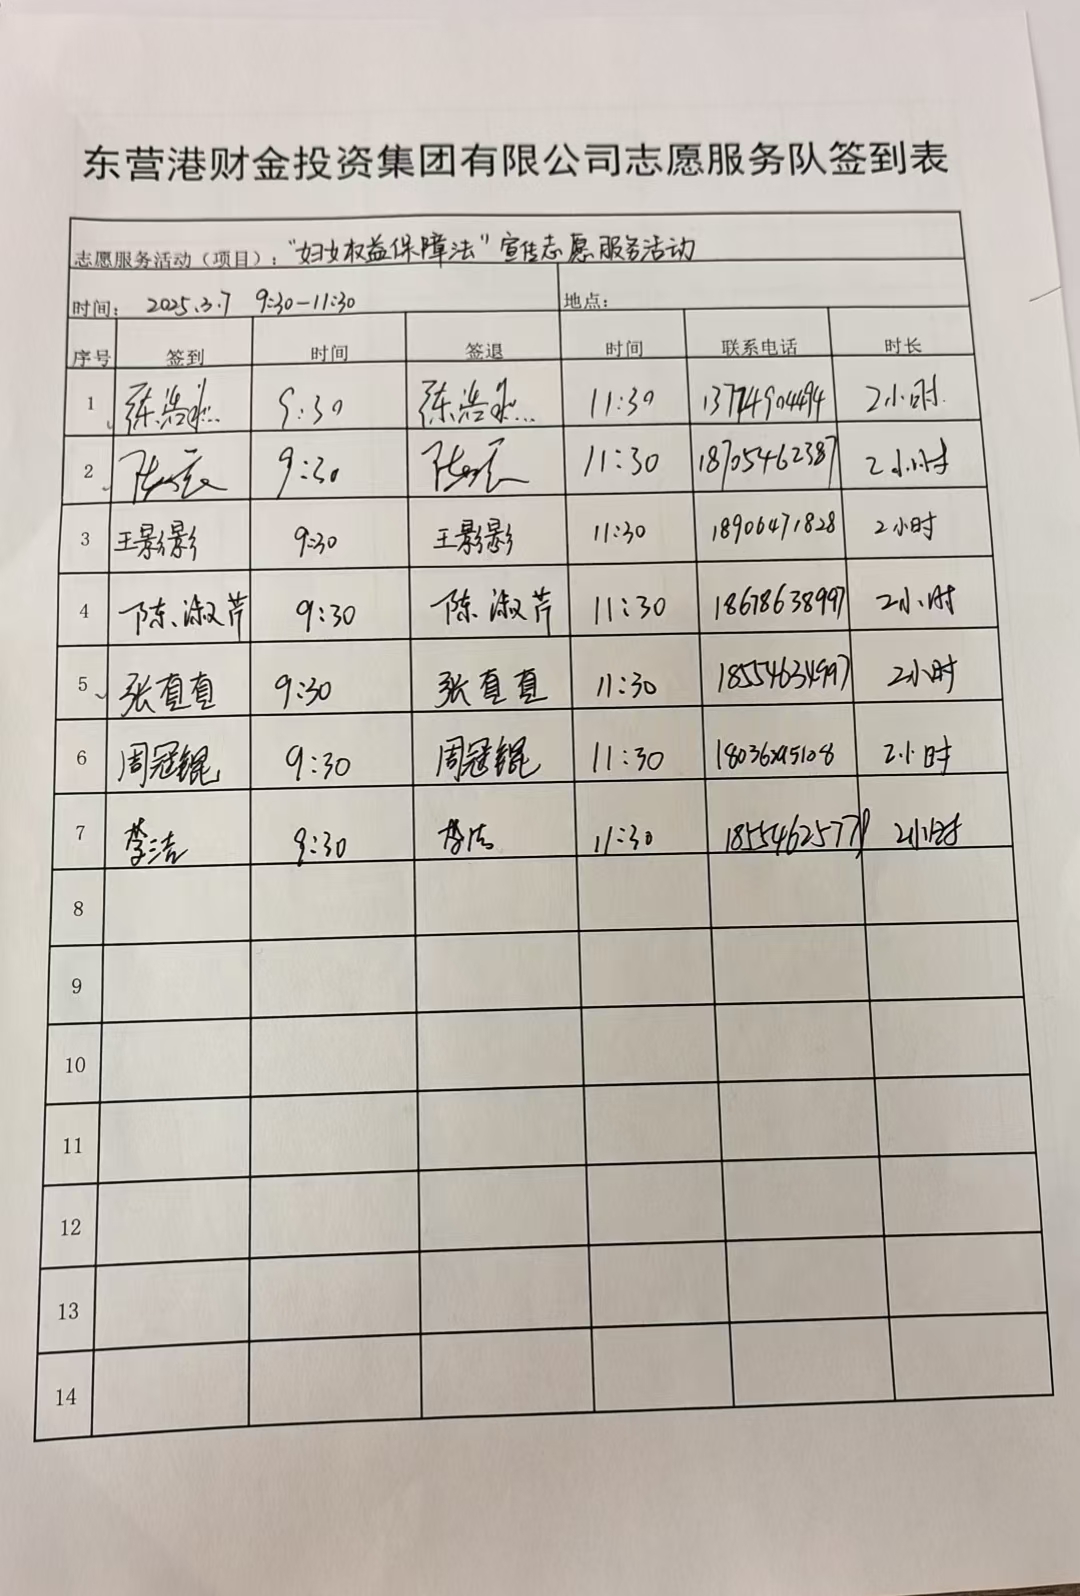 东营港财金投资集团有限公司志愿服务队签到表
志愿服务活动（项目）：“妇女权益保障法”宣传志愿服务活动
时间： 2025.3.7 9:30-11:30 地点：
序号 签到 时间 签退 时间 联系电话 时长
1 9:30 11:30 2小时.
2 9:30 11:30 18705462387 2小时
3 王影影 9:30 王影影 11:30 18906471828 2小时
4 陈淑芹 9:30 陈淑芹 11:30 18678638997 2小时
5 张真真 9:30 张真真 11:30 18554634997 2小时
6 周冠锟 9:30 周冠锟 11:30 2小时
7 李洁 9:30 李洁 11:30 2小时
8
9
10
11
12
13
14